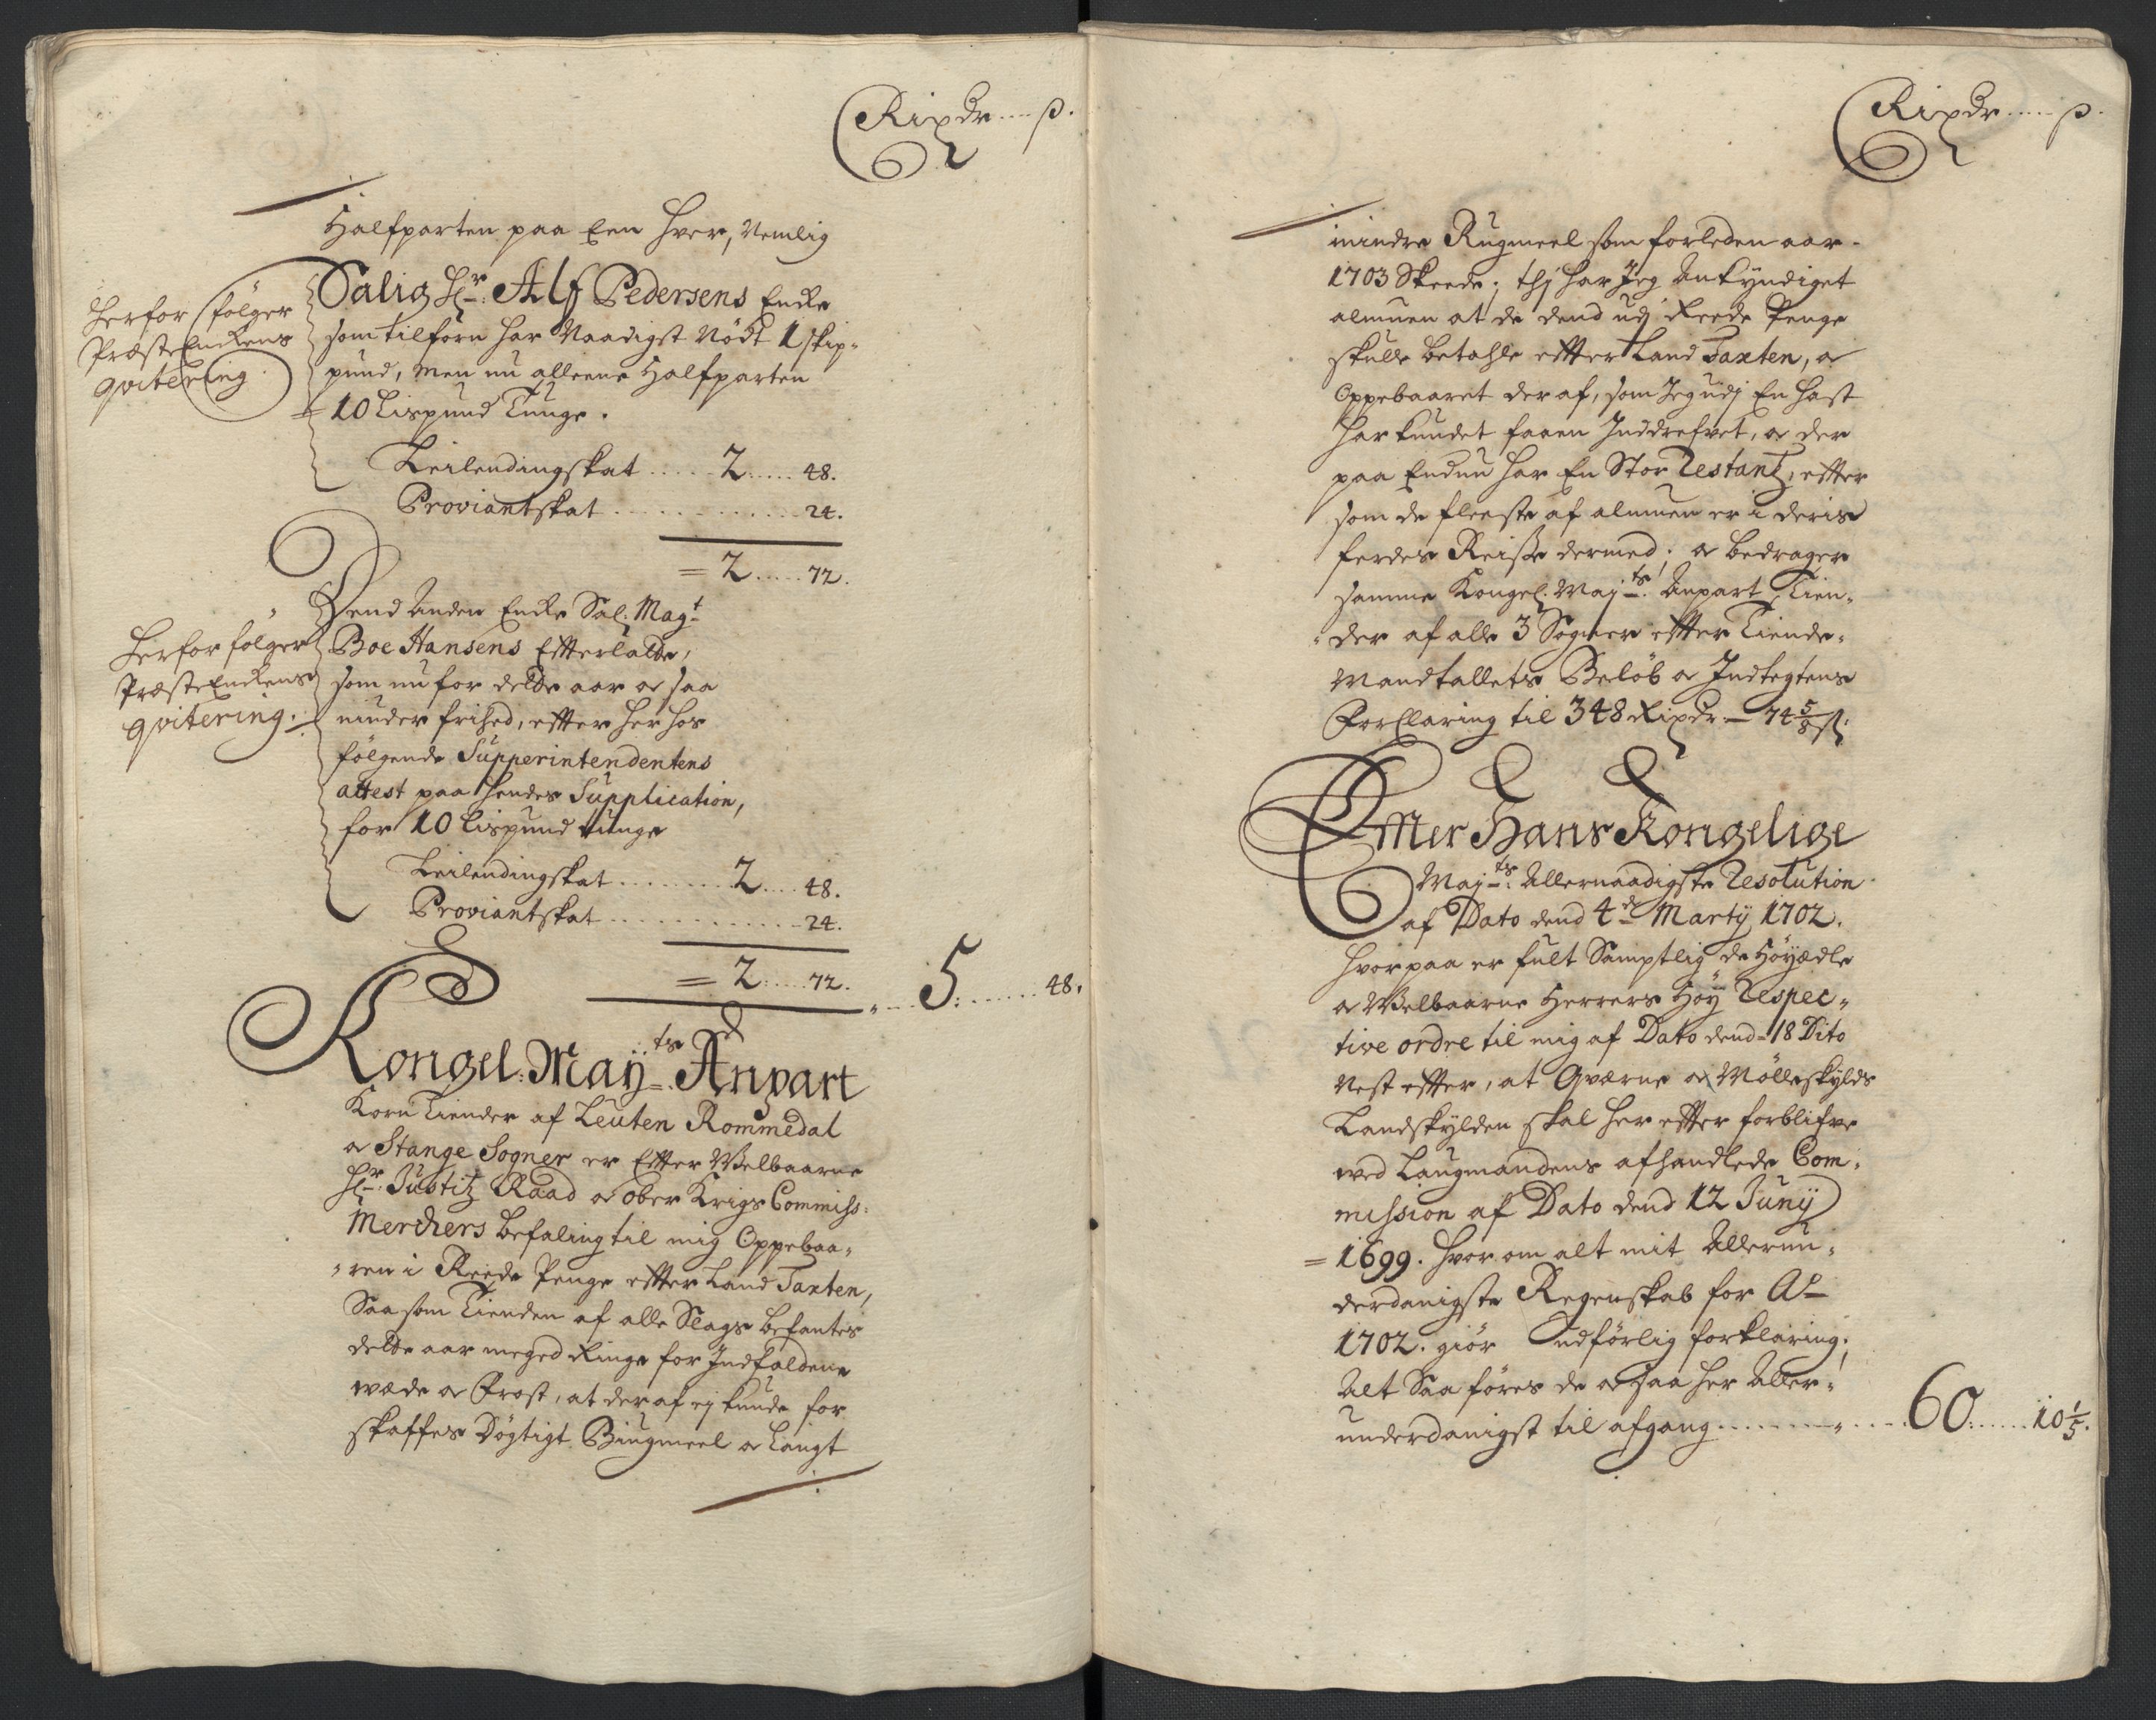 Rixdr .... ß.
Halfparten paa Een hver, Nemlig
Salig Hr: Alf Pedersens Encke
som tilforn har Naadigst Nødt 1 skip-
pund, men nu alleene Halfparten
10 Lispund Tunge.
Herfor følger
Præste Enckens
qvitering
Leilendingskat ..... 2 ..... 48.
Proviantskat ............ 24.
= 2 ..... 72.
Dend Anden Encke Sal: Magt
Boe Hansens Efterladte,
som nu for dette aar oc saa
niuder frihed, effter her hos
følgende Supperintendentens
attest paa hendes Supplication,
for 10 Lispund tunge
Herfor følger
Præste Enckens
qvitering.
Leilendingskat ........ 2 .... 48.
Proviantskat ............ 24.
= 2 ..... 72. .... 5 ....... 48.
Kongel: Mayts: Anpart
Korn Tiender af Leuten Rommedal
oc Stange Sogner er Efter Welbaarne
Hr: Justitz Raad oc ober Krigs Commiss:
Merckers befaling til mig Oppebaa-
ren i Reede Penge effter Land Taxten,
Saasom Tienden af alle Slags befantes
dette aar meged Ringe for Indfaldene
wæde oc Frost, at der af ej kunde for
skaffes Døgtigt Biugmeel oc Langt
Rixdr ..... ß.
mindre Rugmeel som forleden aar
1703 Skeede; thj har Jeg Ankyndiget
almuen at de dend udj Reede Penge
skulle betahle effter Land Taxten, oc
Oppebaaret der af, som Jeg udj En hast
har kundet faaen Inddrefvet, oc der
paa Endnu har En Stor Restantz, effter
som de fleeste af almuen er i deris
ferdes Reise dermed; oc bedrager
samme Kongel: Mayts: Anpart Tien-
der af alle 3 Sogner effter Tiende-
Mandtallets Beløb oc Indtegtens
Forclaring til 348 Rixdr - 74 5/8 ß:
Effter Hans Kongelige
Mayts: Allernaadigste Resolution
af Dato dend 4de Marty 1702.
hvorpaa er fult Samptlig de Høyædle
oc Welbaarne Herrers Høy Respec-
tive ordre til mig af Dato dend 18 Dito
Nest effter, at Qværne oc Mølleskylds
Landskylden skal her effter forblifve
wed Laugmandens afhandlede Com-
mission af Dato dend 12 Juny
1699. hvor om alt mit Allerun-
derdanigste Regenskab for Ao
1702. giør Udførlig forklaring;
Alt Saa føres de oc saa her Aller-
underdanigst til afgang ........ 60 ..... 10 1/5.